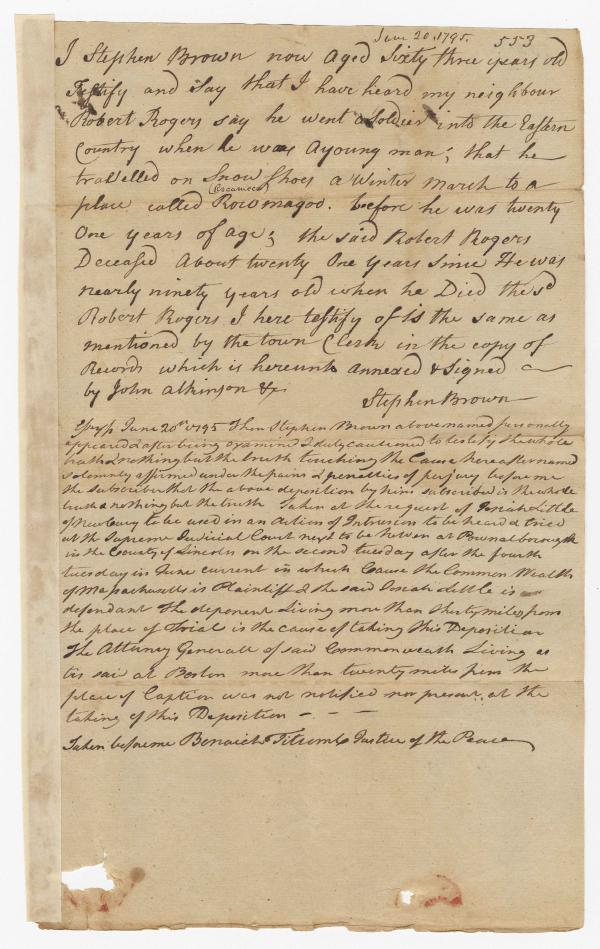 June 20. 1795. 553
I Stephen Brown now aged Sixty three years old
Testify and Say that I have heard my neighbour
Robert Rogers say he went a Soldier into the Eastern
Country when he was a young man; that he
travelled on Snow Shoes a Winter march to a
place called Rocomagod. before he was twenty
One years of age; the said Robert Rogers
Deceased About twenty One years Since He was
nearly ninety years old when he Died the sd
Robert Rogers I here testify of is the same as
mentioned by the town Clerk in the copy of
Records which is hereunto Annexed & Signed
by John Atkinson &c
Stephen Brown
Essex June 20th 1795 Then Stephen Brown above named personally
appeared & after being examined & duly cautioned to testify the whole
truth & nothing but the truth touching the Cause hereafter named
solemnly affirmed under the pains & penalties of perjury before me
the subscriber that the above deposition by him subscribed is the whole
truth & nothing but the truth Taken at the request of Josiah Little
of Newbury to be used in an Action of Intrusion to be heard & tried
at the Supreme Judicial Court next to be holden at Pownalborough
in the County of Lincoln on the second tuesday after the fourth
tuesday in June current in which Cause the Common Wealth
of Massachusetts is Plaintiff & the said Josiah Little is
defendant The deponent Living more than thirty miles from
the place of Trial is the cause of taking this Deposition
The Attorney Generall of said Commonwealth Living as
tis said at Boston more than twenty miles from the
place of Caption was not notified nor present at the
taking of this Deposition
Taken before me Titcomb Justice of the Peace